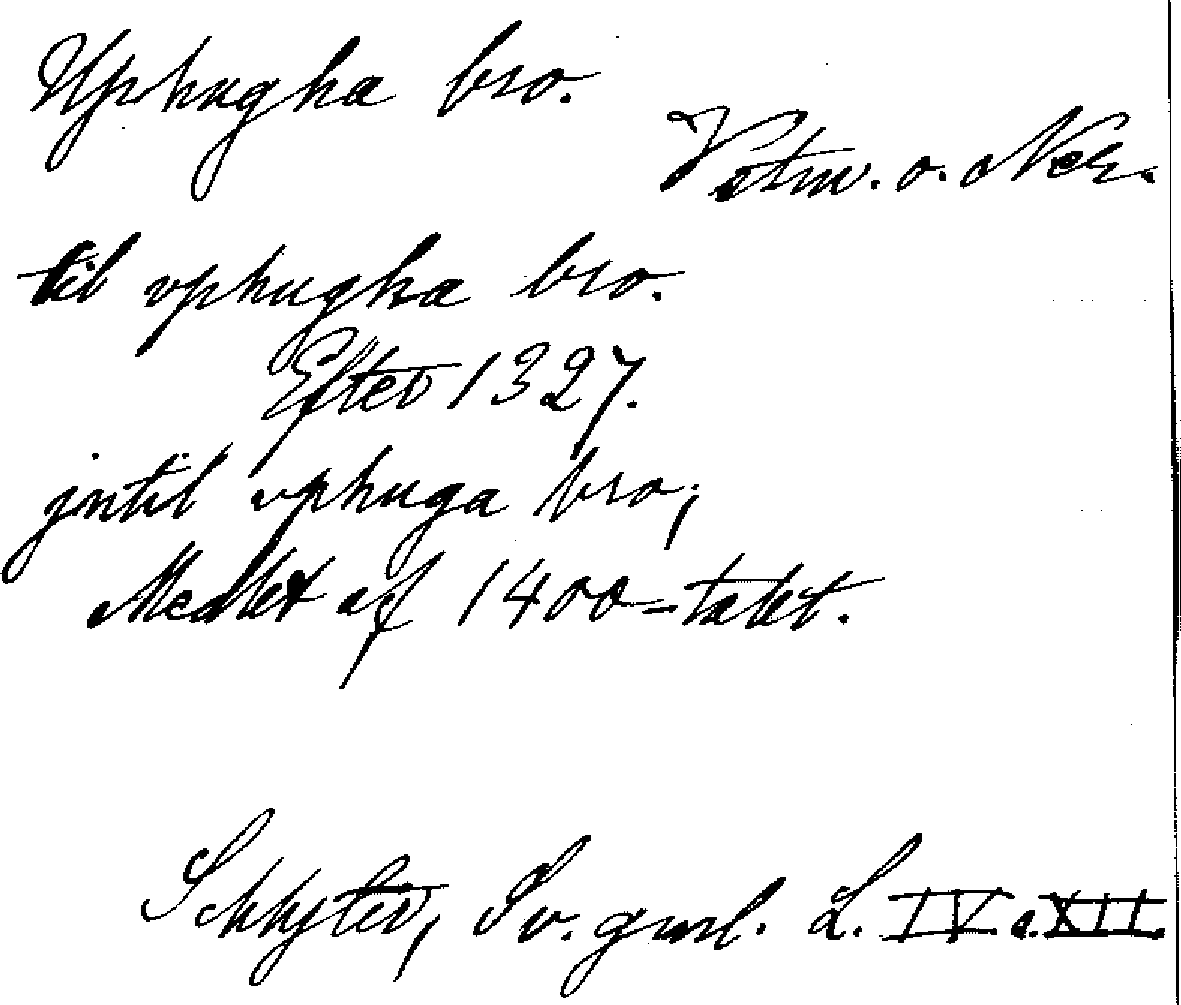 Uphugha bro.
Vstm. o. Ner.
til vphugha bro.
Efter 1327.
jntil vphuga bro;
Medlet af 1400-talet.
Schlyter, Sv. gml. L. IV o. XII.